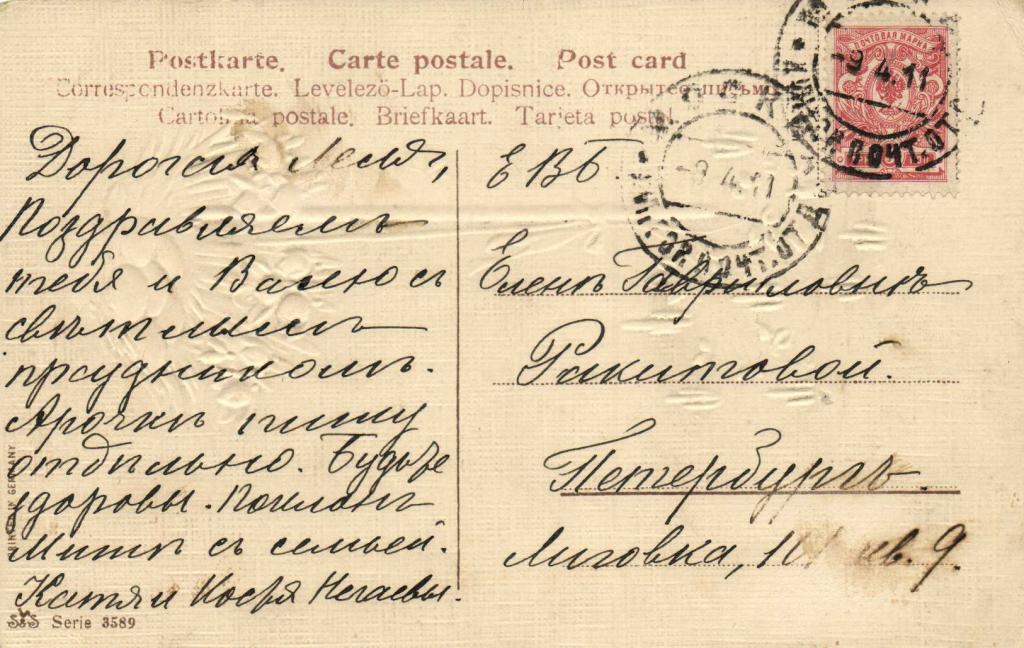 Postkarte. Carte postale. Post card
Correspondenzkarte. Levelező-Lap. Dopisnice. Открытое письмо
Cartolina postale. Briefkaart. Tarjeta postal.
Дорогая Леля,
Поздравляемъ
тебя и Васю съ
свѣтлымъ
праздникомъ.
Арочкѣ пишу
отдѣльно. Будьте
здоровы. Поклонъ
Митѣ съ семьей.
Катя и Костя Нечаевы.
ЕВБ
Еленѣ Гавриловнѣ
Ракитовой.
Петербургъ.
Лиговка, кв. 9.
ПОЧТОВАЯ МАРКА
-9.4.11
ПОЧТ. ОТД
-9.4.11
ПОЧТ. ОТД
PRINTED IN GERMANY
S&S Serie 3589